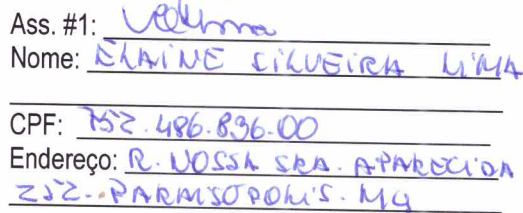 Ass. #1:
Nome: ELAINE SILVEIRA LIMA
CPF: 752.486.836.00
Endereço: R. NOSSA SRA. APARECIDA
252 - PARAISOPOLIS. MG